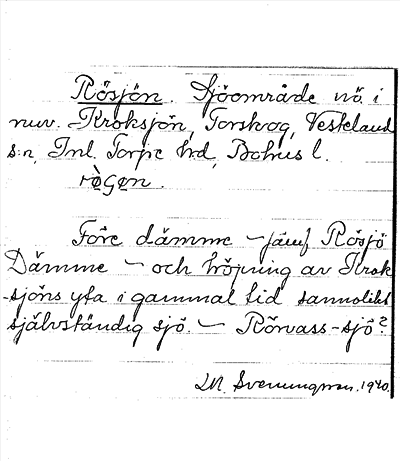 Rösjön. Sjöområde nö. i
nuv. Kroksjön, Torskog, Vesteland
s:n, Inl. Torpe hd, Bohus l.
rö̀gən.
Före dämme – jämf Rösjö
Dämme – och höjning av Krok-
sjöns yta i gammal tid sannolikt
självständig sjö. – Rörvass-sjö?
M. Svenungsson. 1940.